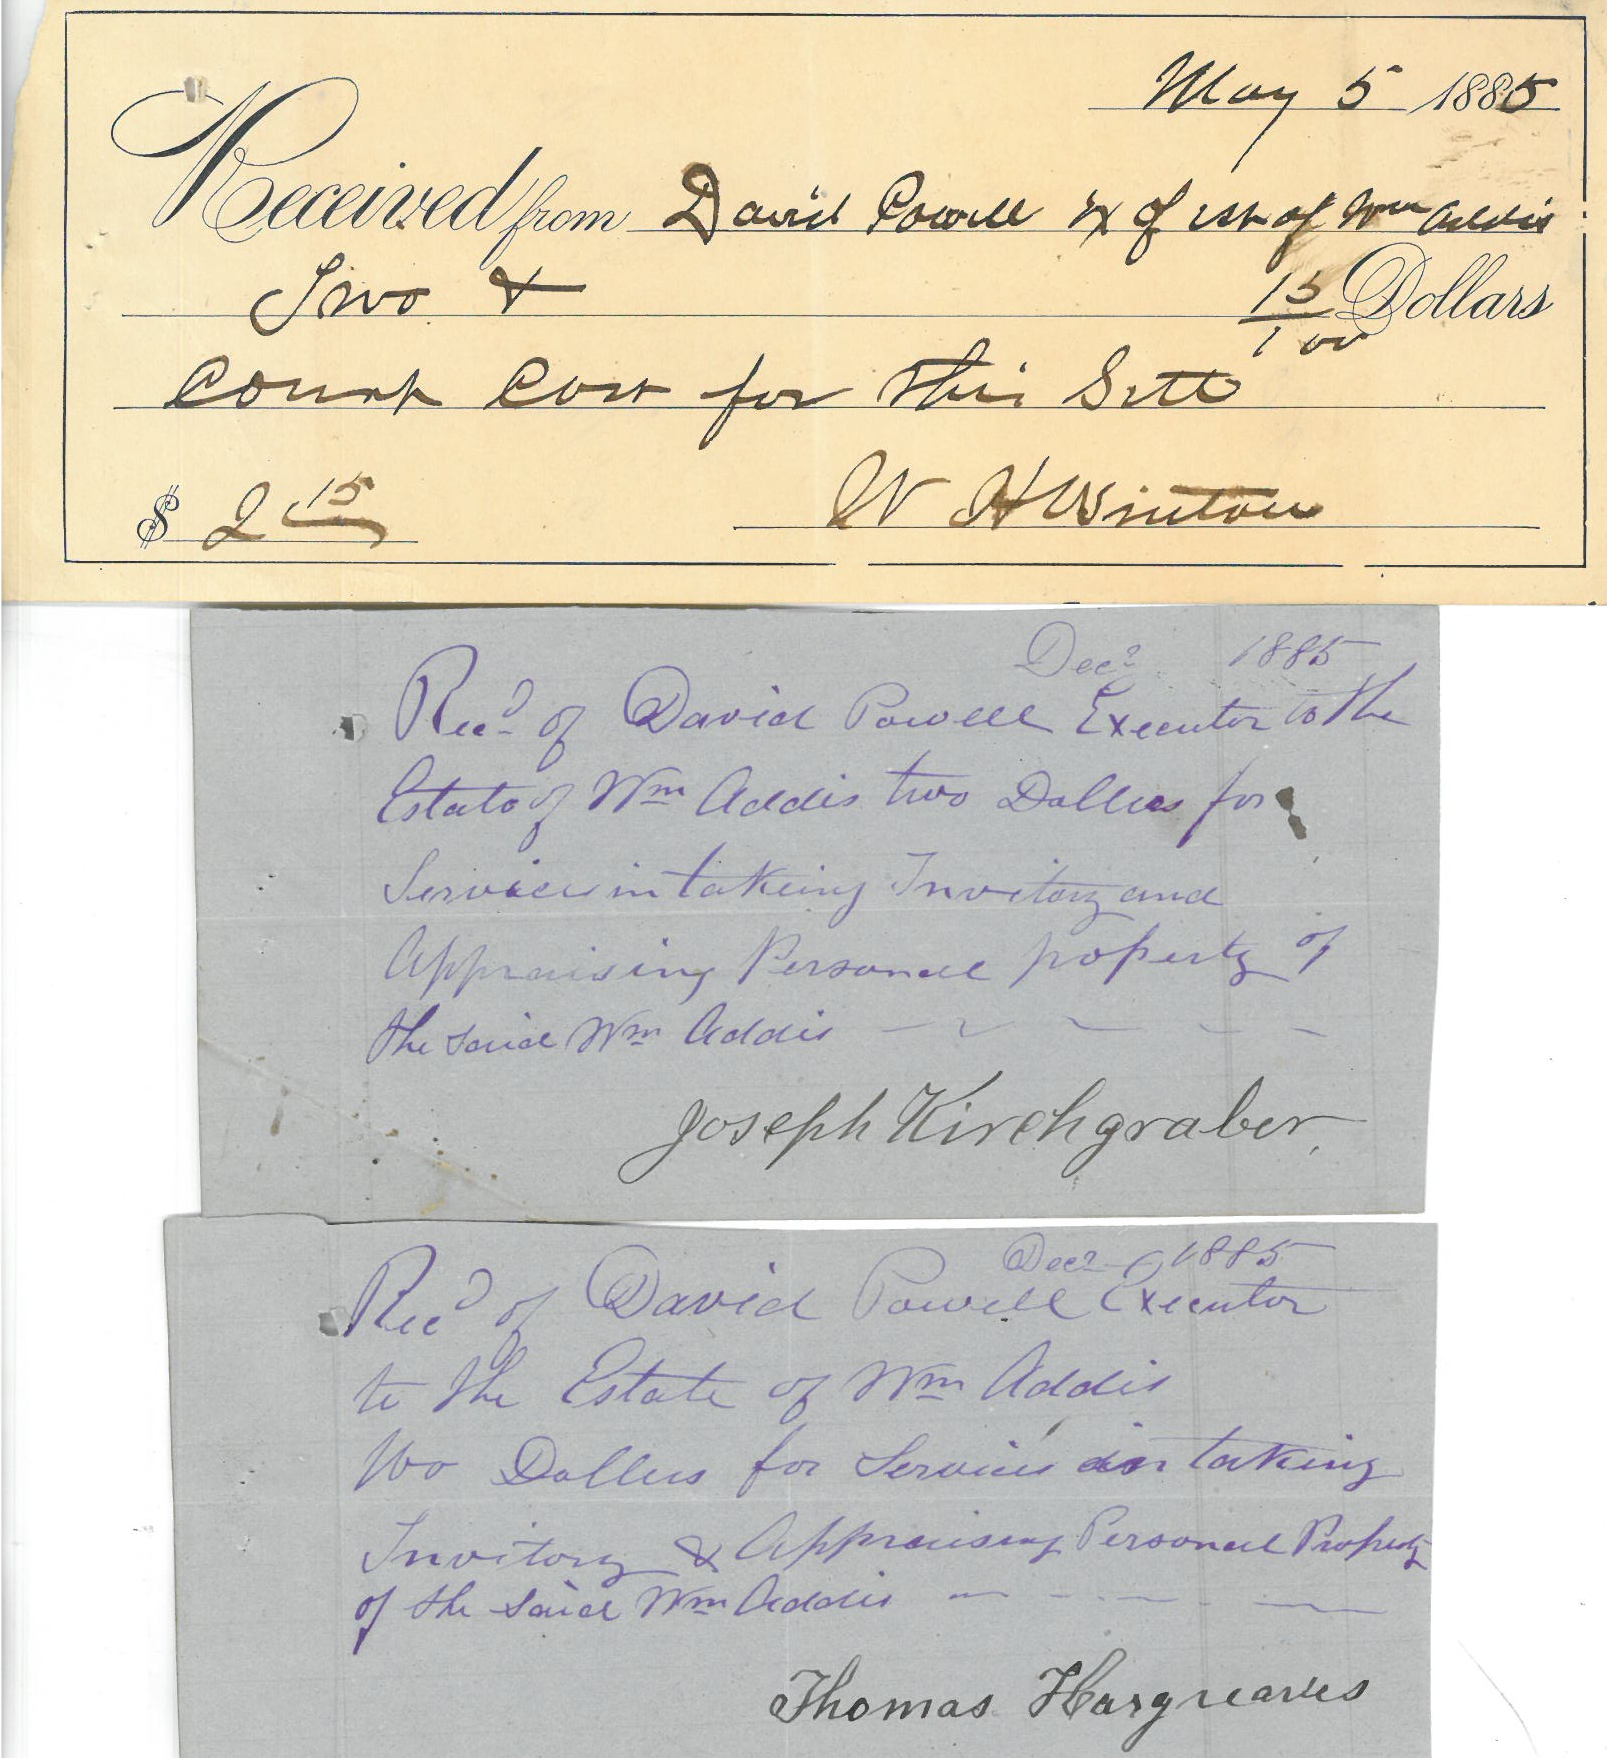 May 5 1885
Received from David Powell Ex of est of Wm Addis
Two & 15/100 Dollars
Court Cost for this Settl
$ 2.15
W H Winton
Decr 1885
Recd of David Powell Executor to the
Estate of Wm Addis two Dollars for
Services in takeing Invitory and
Appraising Personal property of
the said Wm Addis
Joseph Kirchgraber.
Decr 1885
Recd of David Powell Executor
to the Estate of Wm Addis
two Dollers for Services in taking
Invitory & Appraising Personal Property
of the said Wm Addis
Thomas Hargreaves